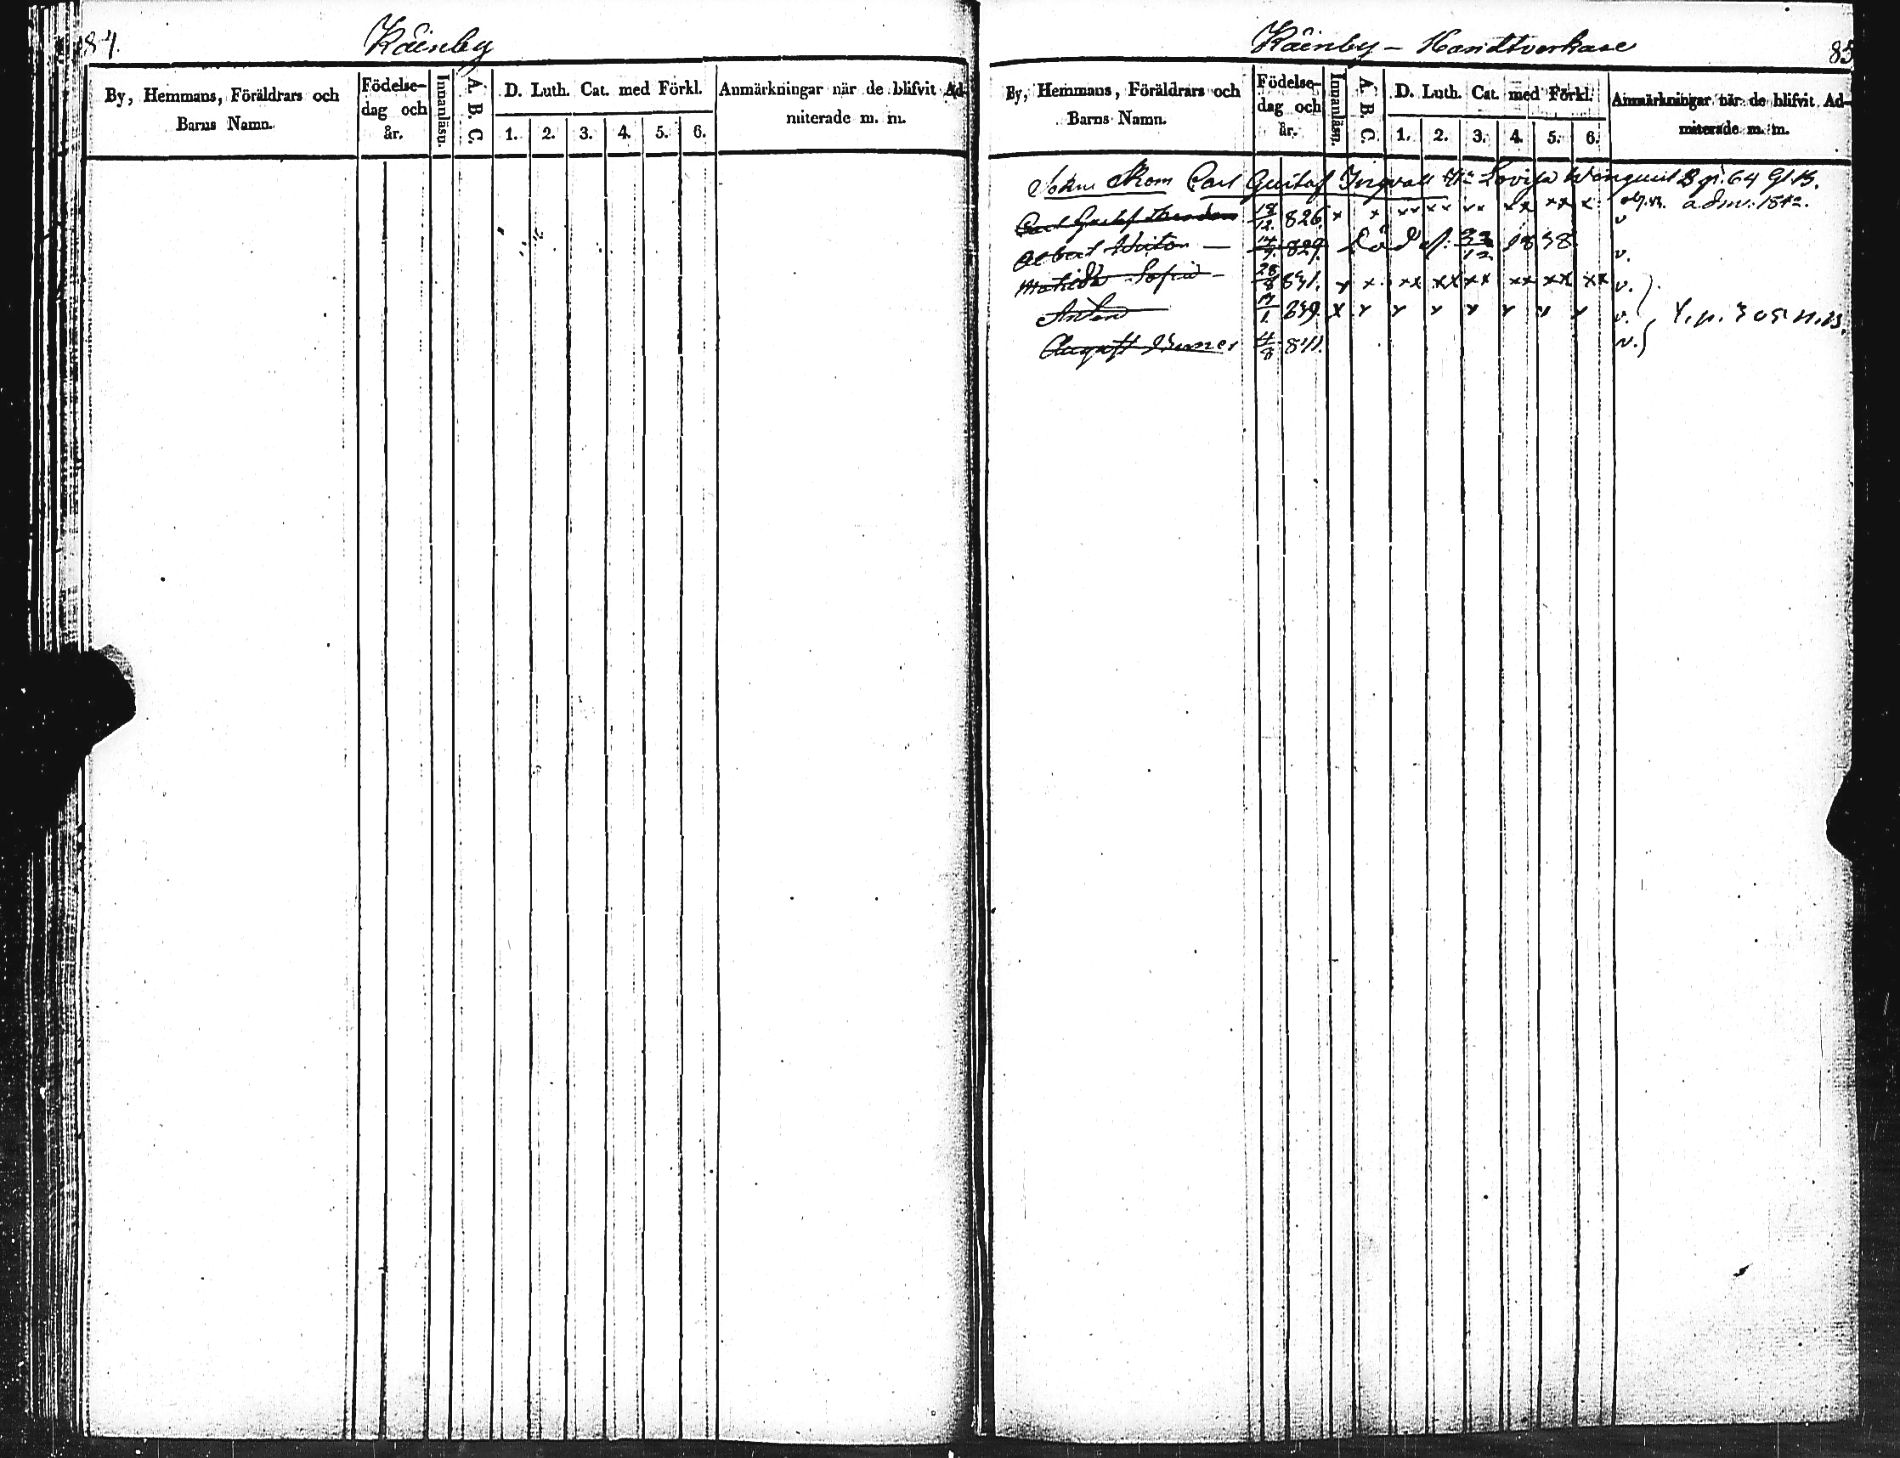 84.
Käinby
By, Hemmans, Föräldrars och
Barns Namn.
Födelse-
dag och
år.
Innanläsn.
A. B. C.
D. Luth. Cat. med Förkl.
1. 2. 3. 4. 5. 6.
Anmärkningar när de blifvit Ad-
miterade m. m.
Käinby – Handtverkare
85
By, Hemmans, Föräldrars och
Barns Namn.
Födelse-
dag och
år.
Innanläsn.
A. B. C.
D. Luth. Cat. med Förkl.
1. 2. 3. 4. 5. 6.
Anmärkningar när de blifvit Ad-
miterade m. m.
Sokne Skom Carl Gustaf Ingvall H:u Lovisa p. 64 Gl.B.
Carl Gustaf 18/12 826. x x xx xx xx xx xx x adm. 1842.
Albert 14/9 829. Död d. 1838 v.
Mathilda Sofia – 28/8 831. x x xx xx xx xx xx xx v.
Anton 17/1 839. x x x x x x x x v. Y. p. 305 N.B.
August 4/8 841. v.